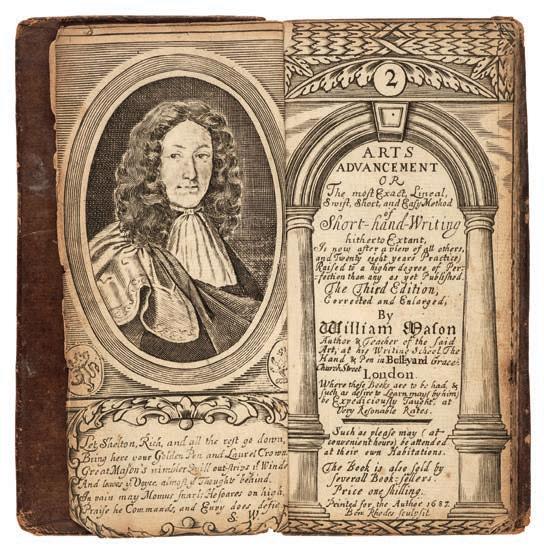 Let Shelton, Rich, and all the rest go down,
Bring here your Golden Pen and Laurel Crown
Great Mason's nimbler Quill out-strips ye Winde
And leaves ye Voyce, almost ye Thoughts behind.
In vain may Momus snarl; He soares on high,
Praise he Commands, and Envy does defie.
S. W.
2
ARTS
ADVANCEMENT
OR
The most Exact, Lineal,
Swift, Short, and Easy Method
of
Short-hand-Writing
hitherto Extant,
Is now after a view of all others,
and Twenty eight years Practice,
Raised to a higher degree of Per-
fection than any as yet Published.
The Third Edition,
Corrected and Enlarged,
By
William Mason
Author & Teacher of the said
Art, at his Writing School The
Hand & Pen in Bellyard Grace-
Church Street
London.
Where these Books are to be had, &
such as desire to Learn may by him
be Expediciously Taught, at
Very Resonable Rates.
Such as please may (at
convenient houres) be attended
at their own Habitations.
The Book is also sold by
severall Book-sellers.
Price one shilling.
Printed for the Author 1687.
Ben: Rhodes sculpsit